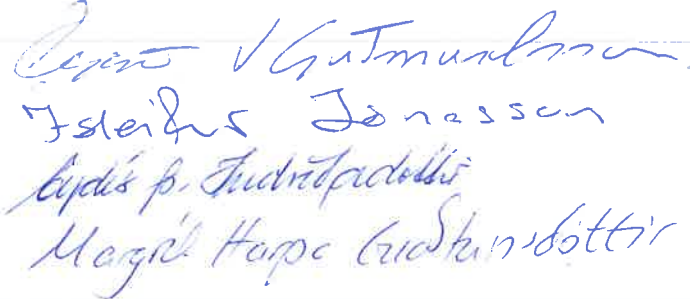 V Guðmundsson
Ísleifur Jónasson
Eydís Þ. Indriðadóttir
Margrét Harpa Guðsteinsdóttir